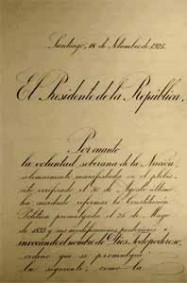 Santiago, 18 de Setiembre de 1925.
El Presidente de la República,
Por cuanto
la voluntad soberana de la Nación,
solemnemente manifestada en el plebis-
cito verificado el 30 de Agosto último
ha acordado reformar la Constitución
Política promulgada el 25 de Mayo
de 1833 y sus modificaciones posteriores e
invocando el nombre de Dios Todopoderoso,
ordeno que se promulgue
la siguiente, como la